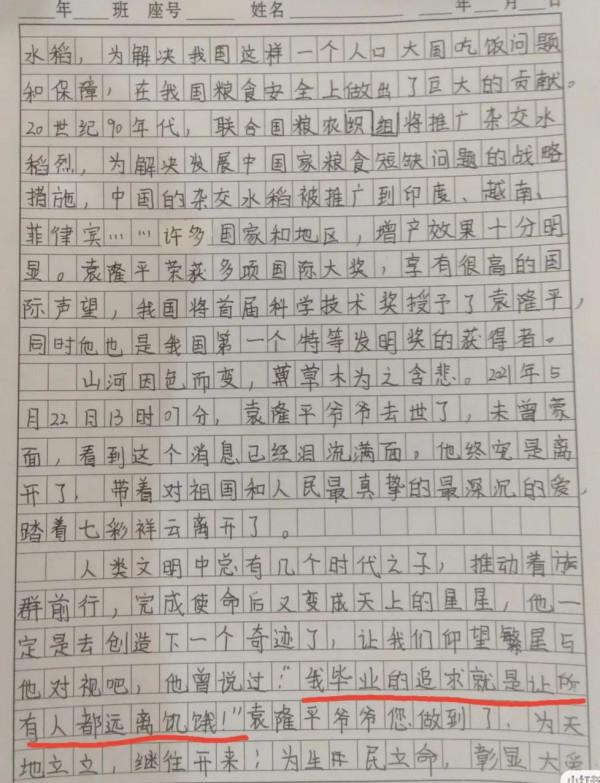 年 班 座号 姓名 年 月 日
水稻，为解决我国这样一个人口大国吃饭问题
和保障，在我国粮食安全上做出了巨大的贡献。
20世纪90年代，联合国粮农织组将推广杂交水
稻烈，为解决发展中国家粮食短缺问题的战略
措施，中国的杂交水稻被推广到印度、越南、
菲律宾……许多国家和地区，增产效果十分明
显。袁隆平荣获多项国际大奖，享有很高的国
际声望，我国将首届科学技术奖授予了袁隆平，
同时他也是我国第一个特等发明奖的获得者。
山河因色而变，草木为之含悲。2021年5
月22日13时07分，袁隆平爷爷去世了，未曾蒙
面，看到这个消息已经泪流满面。他终究是离
开了，带着对祖国和人民最真挚的最深沉的爱，
踏着七彩祥云离开了。
人类文明中总有几个时代之子，推动着族
群前行，完成使命后又变成天上的星星，他一
定是去创造下一个奇迹了，让我们仰望繁星与
他对视吧，他曾说过："我毕业的追求就是让所
有人都远离饥饿！"袁隆平爷爷您做到了，为天
地立立，继往开来；为生民立命，彰显大
小红书